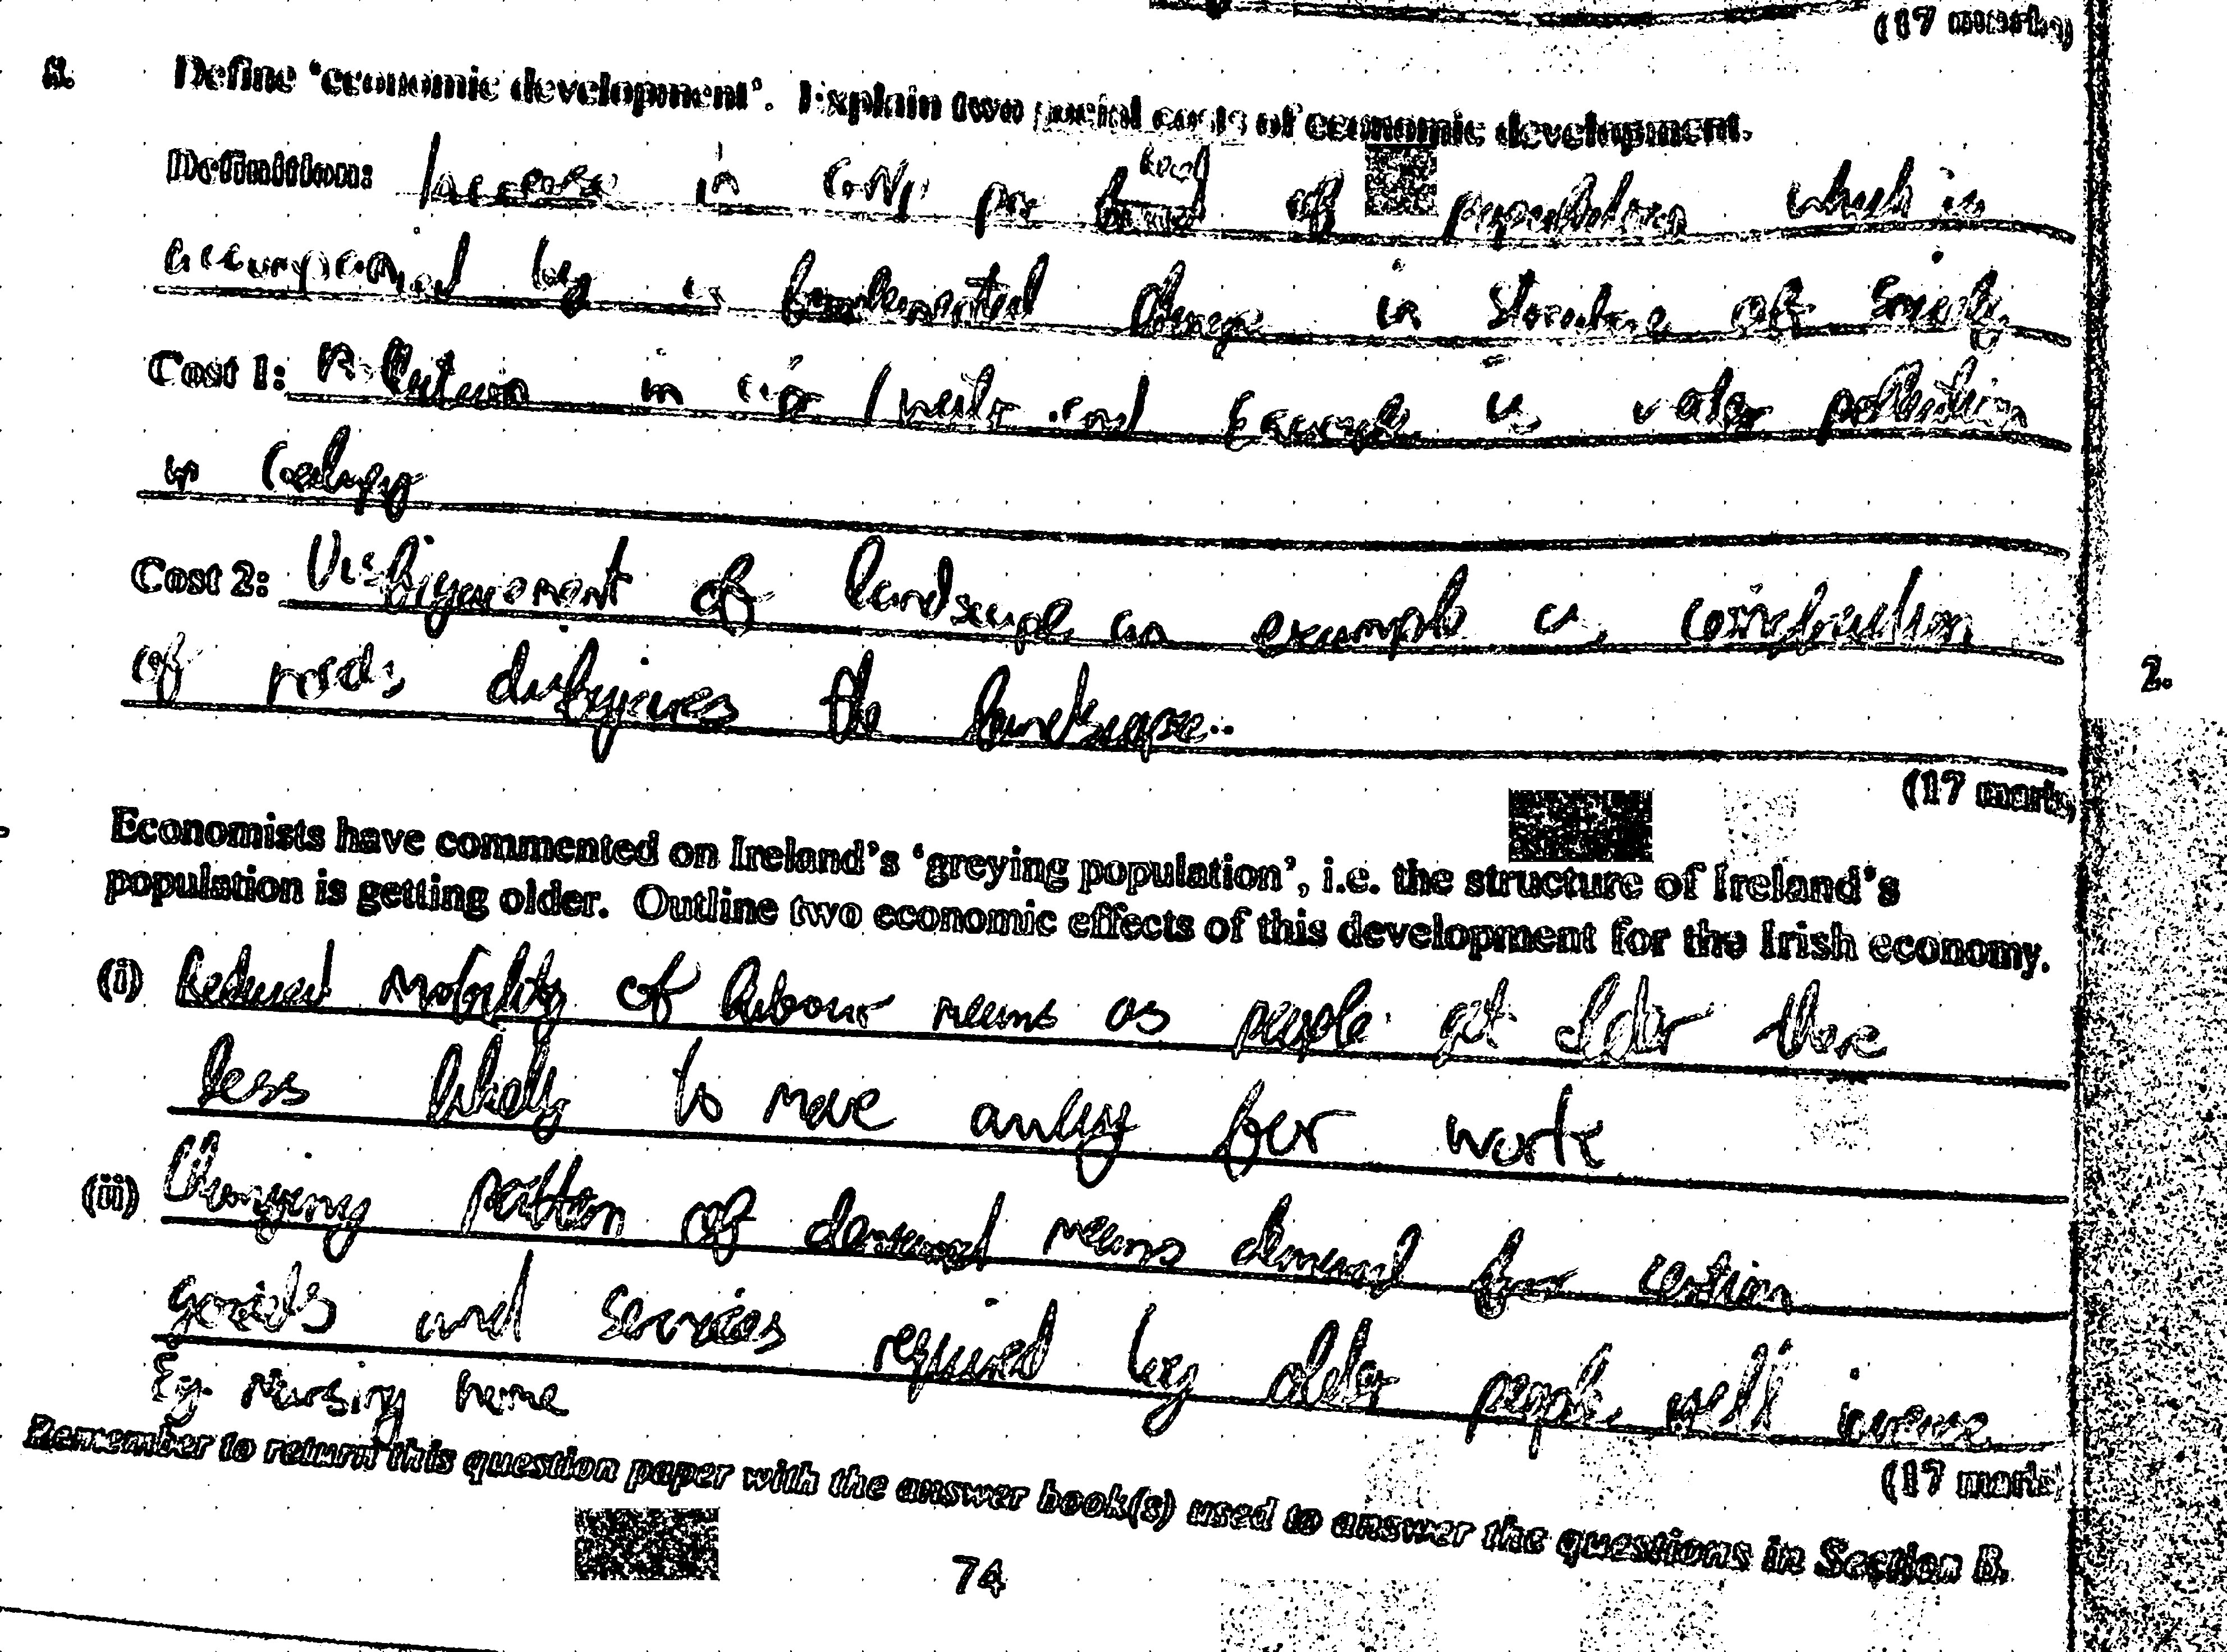 (17 marks)
Define 'economic development'. Explain two social costs of economic development.
Definition: Increase in GNP per head of population which is
accompanied by a fundamental change in structure of society
Cost 1: Pollution in air / water and Example is water pollution
in
Cost 2: Disfigurement of landscape an example is construction
of roads disfigures the landscape..
2.
(17 marks
Economists have commented on Ireland's 'greying population', i.e. the structure of Ireland's
population is getting older. Outline two economic effects of this development for the Irish economy.
(i) Reduced mobility of labour means as people get older there
less likely to move away for work
(ii) Changing pattern of demand means demand for certian
goods and services required by older people will increase
Eg. Nursing home
(17 marks
Remember to return this question paper with the answer book(s) used to answer the questions in Section B.
74